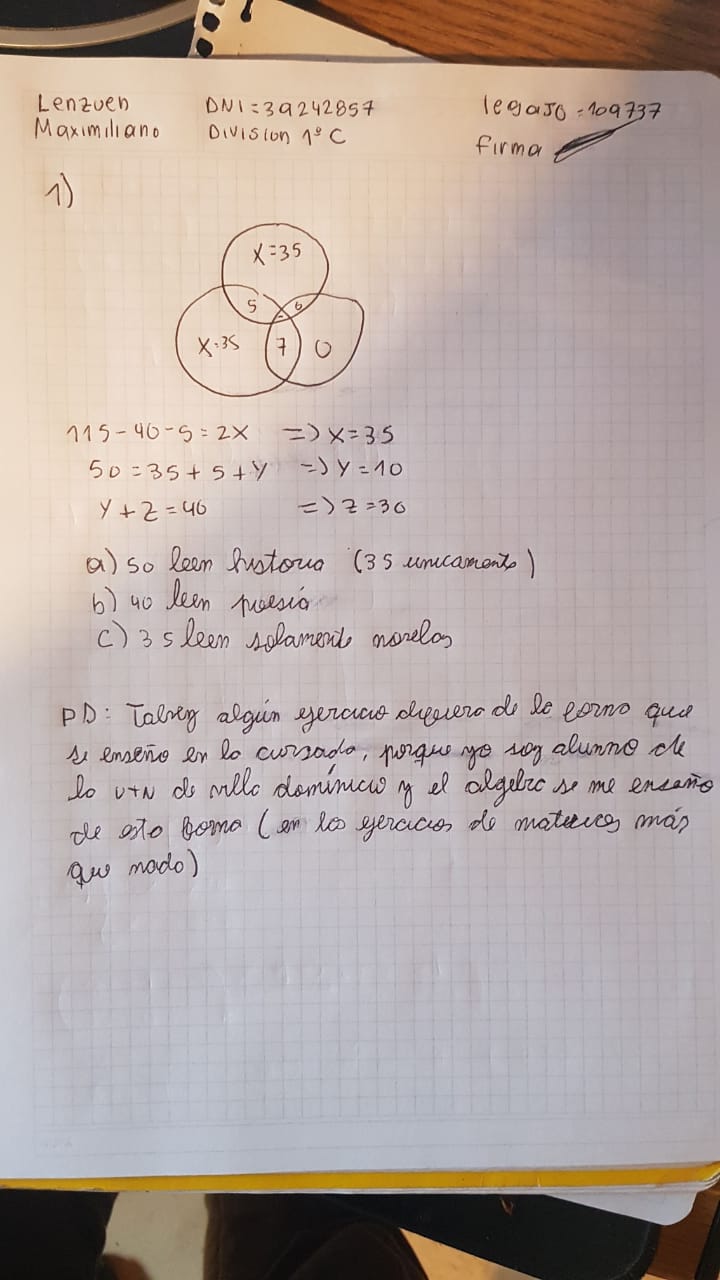 Lenzuen DNI=39242857 legajo=109737
Maximiliano División 1º C firma
1)
X=35
5 6
X=35 7 0
115-40-5=2X => X=35
50=35+5+Y => Y=10
Y+Z=40 => Z=30
a) 50 leen historia (35 unicamente)
b) 40 leen poesía
c) 35 leen solamente novelas
PD: Talvez algún ejercicio difiera de la forma que
se enseño en la cursada, porque yo soy alumno de
la UTN de villa domínico y el algebra se me enseño
de esta forma (en los ejercicios de matrices más
que nada)